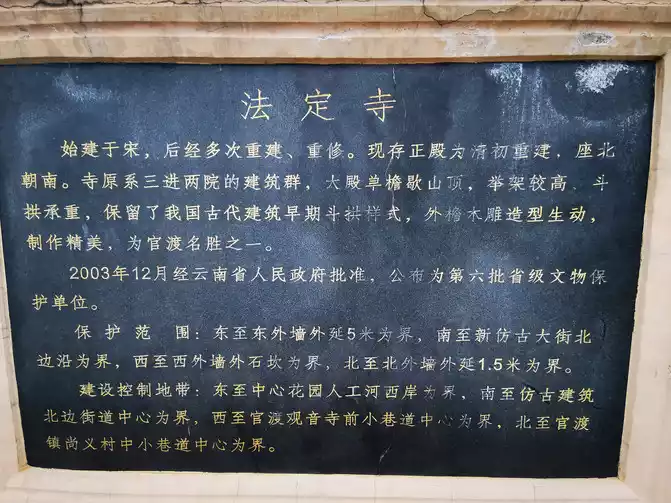 法定寺
始建于宋，后经多次重建、重修。现存正殿为清初重建，座北
朝南。寺原系三进两院的建筑群，大殿单檐歇山顶，举架较高、斗
拱承重，保留了我国古代建筑早期斗拱样式，外檐木雕造型生动，
制作精美，为官渡名胜之一。
2003年12月经云南省人民政府批准，公布为第六批省级文物保
护单位。
保护范围：东至东外墙外延5米为界，南至新仿古大街北
边沿为界，西至西外墙外石坎为界，北至北外墙外延1.5米为界。
建设控制地带：东至中心花园人工河西岸为界，南至仿古建筑
北边街道中心为界，西至官渡观音寺前小巷道中心为界，北至官渡
镇尚义村中小巷道中心为界。